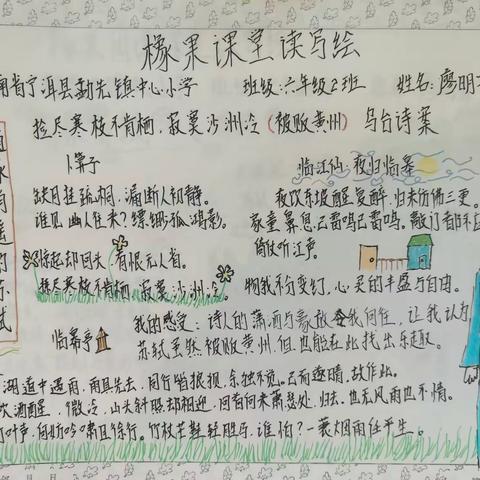 橡果课堂读写绘
南省宁洱县勐先镇中心小学 班级:六年级2班 姓名:廖明
捡尽寒枝不肯栖,寂寞沙洲冷(被贬黄州)乌台诗案
卜算子
缺月挂疏桐,漏断人初静。
谁见幽人往来?缥缈孤鸿影。
惊起却回头,有恨无人省。
拣尽寒枝不肯栖,寂寞沙洲冷。
临江仙·夜归临皋
夜饮东坡醒复醉,归来仿佛三更。
家童鼻息已雷鸣已雷鸣。敲门都不应
倚仗听江声。
物我不分变幻,心灵的丰盛与自由。
临皋亭
我的感受:诗人的潇洒与豪放令我向往,让我认为
苏轼虽然被贬黄州,但也能在此找出乐趣。
湖道中遇雨,雨具先去,同行皆狼狈,余独不觉。已而遂晴,故作此。
吹酒醒,微冷,山头斜照却相迎,回首向来萧瑟处,归去,也无风雨也不情。
打叶声,何妨吟啸且徐行。竹杖芒鞋轻胜马,谁怕?一蓑烟雨任平生。